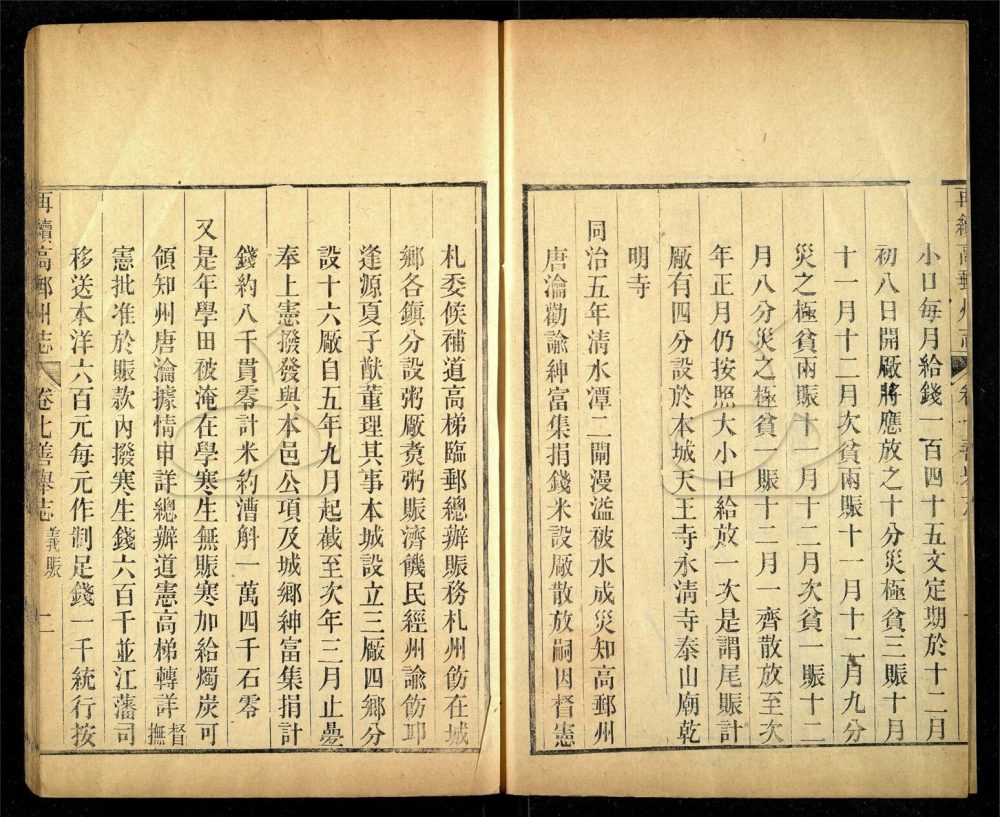 小口每月給錢一百四十五文定期於十二月
初八日開厰將應放之十分災極貧三賑十月
十一月十二月次貧兩賑十一月十二月九分
災之極貧兩賑十一月十二月次貧一賑十二
月八分災之極貧一賑十二月一齊散放至次
年正月仍按照大小口給放一次是謂尾賑計
厰有四分設於本城天王寺永清寺泰山廟乾
明寺
同治五年清水潭二閘漫溢被水成災知高郵州
唐瀹勸諭紳富集捐錢米設厰散放嗣因督憲
札委候補道高梯臨郵總辦賑務札州飭在城
鄉各鎮分設粥厰煑粥賑濟饑民經州諭飭卭
逢源夏子猷董理其事本城設立三厰四鄉分
設十六厰自五年九月起截至次年三月止㬪
奉上憲撥發與本邑公項及城鄉紳富集捐計
錢約八千貫零計米約漕斛一萬四千石零
又是年學田被淹在學寒生無賑寒加給燭炭可
領知州唐瀹據情申詳總辦道憲高梯轉詳督撫
憲批准於賑款內撥寒生錢六百千並江藩司
移送本洋六百元每元作制足錢一千統行按
再續高郵州志 卷七善舉志 義賑 二